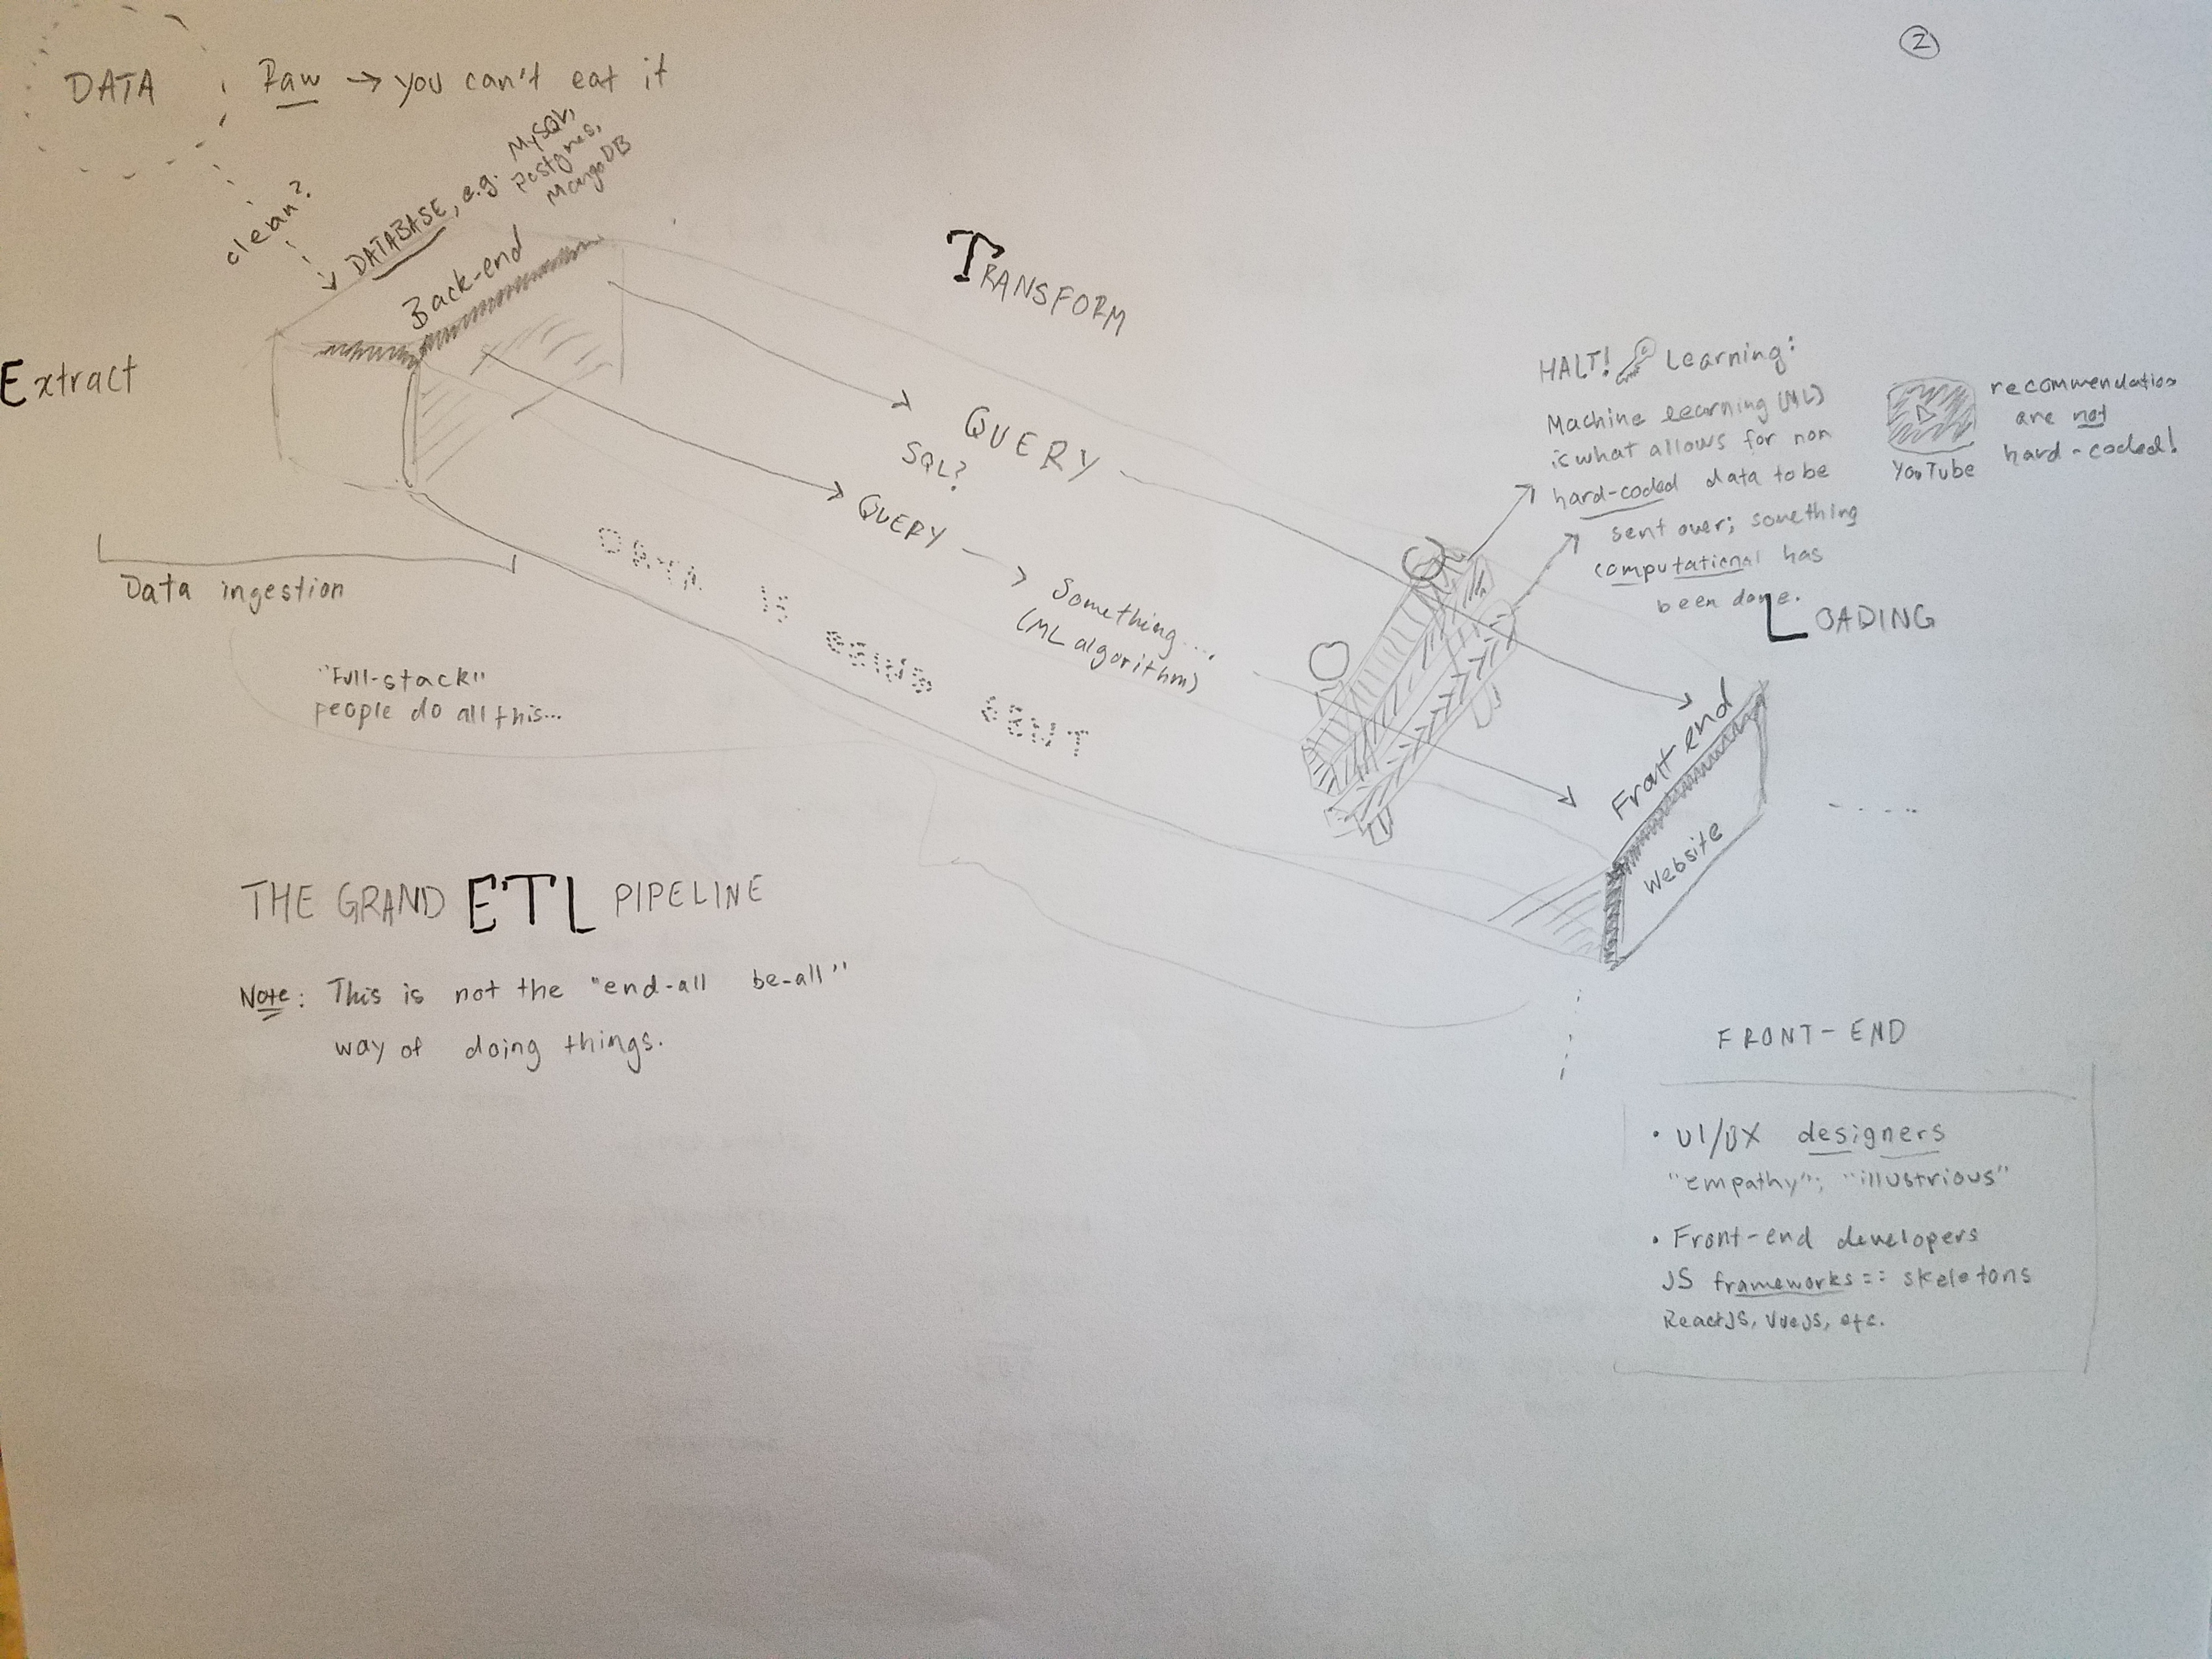 2
DATA
Raw → you can't eat it
clean?
DATABASE, e.g. MySQL,
Postgres,
MongoDB
Back-end
Extract
Data ingestion
"Full-stack"
people do all this...
TRANSFORM
QUERY
SQL?
QUERY → Something....
(ML algorithm)
DATA IS BEING SENT
HALT! Learning:
Machine learning (ML)
is what allows for non
hard-coded data to be
sent over; something
computational has
been done.
YouTube
recommendations
are not
hard-coded!
LOADING
Front end
Website
THE GRAND ETL PIPELINE
Note: This is not the "end-all be-all"
way of doing things.
FRONT-END
• UI/UX designers
"empathy"; "illustrious"
• Front-end developers
JS frameworks == skeletons
ReactJS, VueJS, etc.